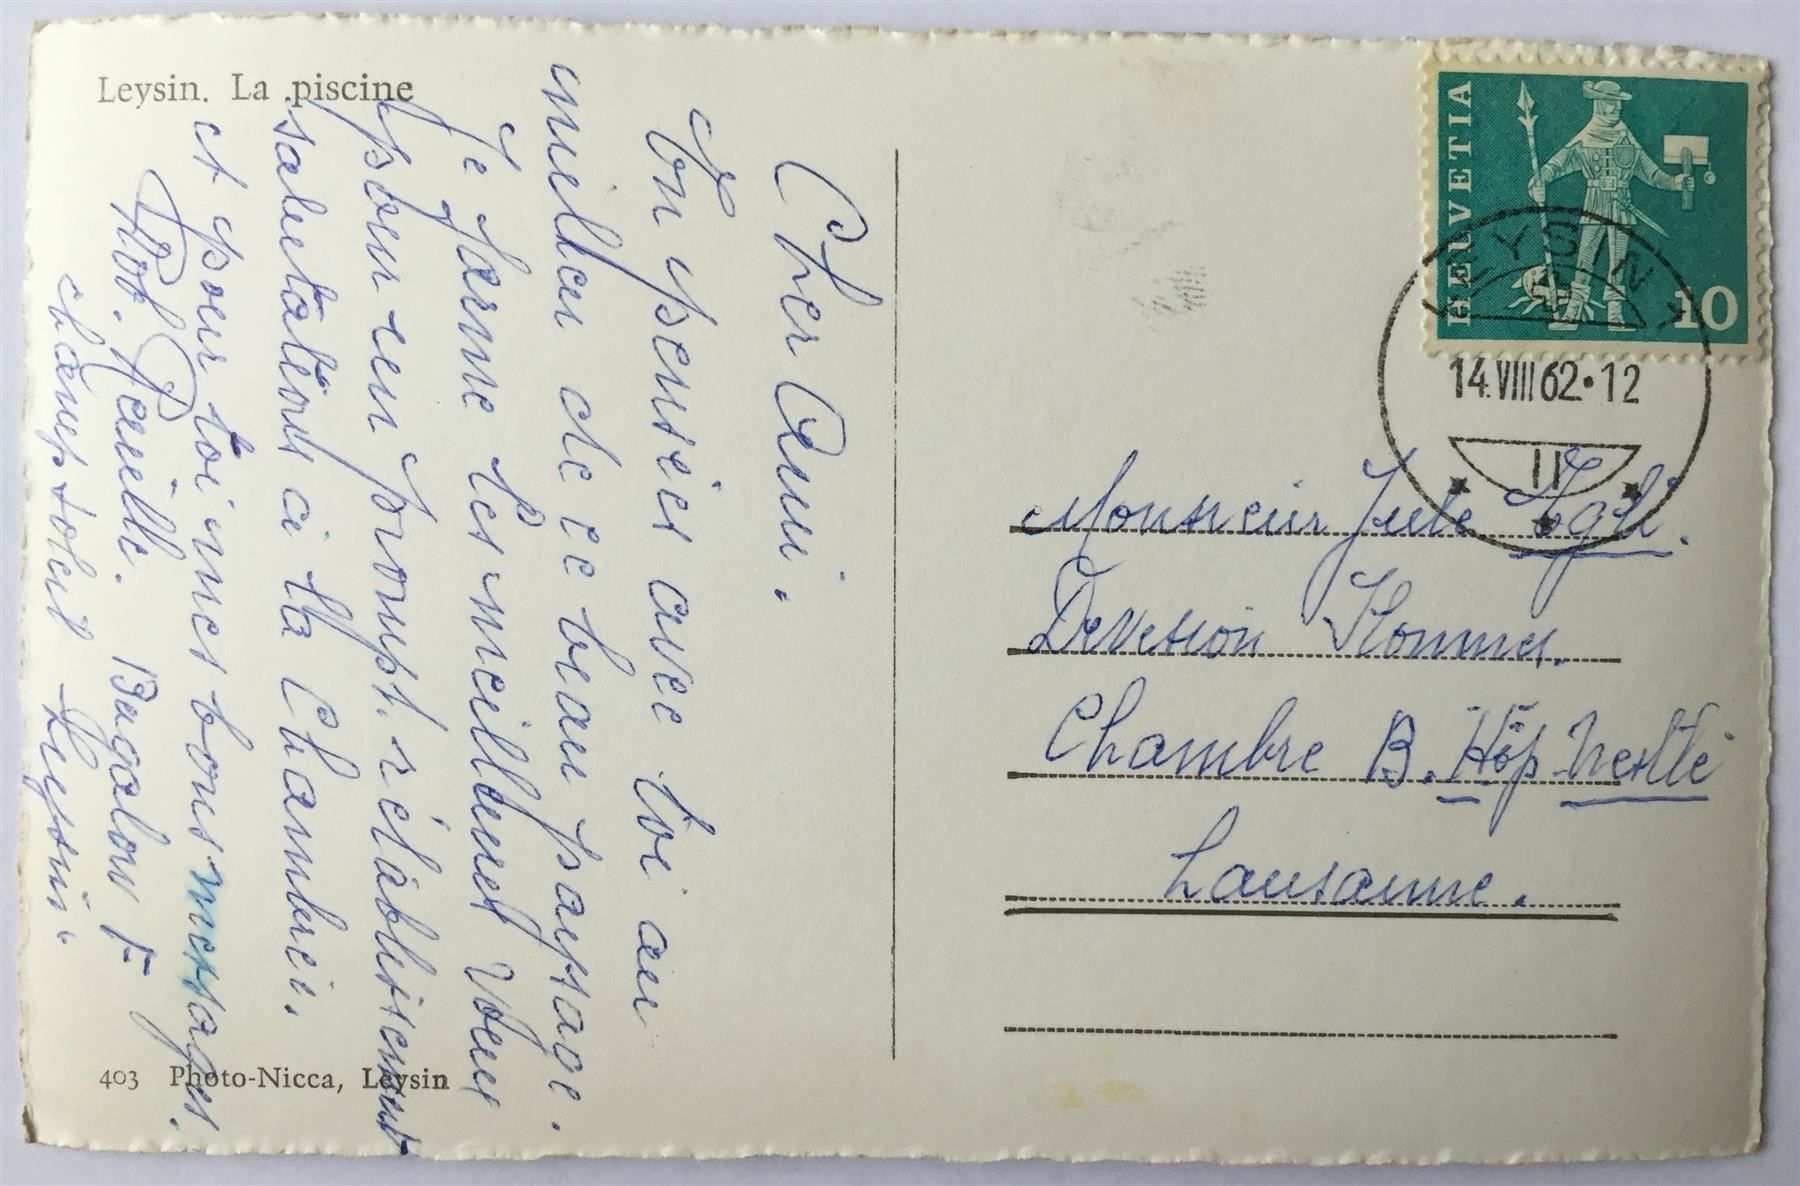 Leysin. La piscine
Cher Ami.
En pensées avec toi au
milieu de ce beau paysage.
Je forme les meilleurs vœux
pour un prompt rétablissement
salutations à la Chambrée.
et pour toi mes bons messages.
Rob.
Champ Soleil Leysin.
403 Photo-Nicca, Leysin
HELVETIA
10
LEYSIN 1
14.VIII 62.12
Monsieur Jule Egli.
Chambre B. Hôp Nestlé
Lausanne.